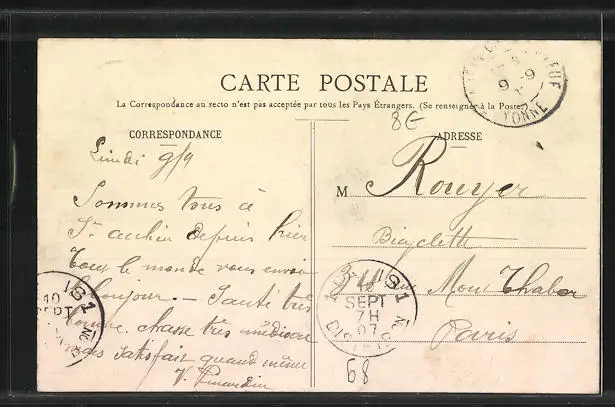 CARTE POSTALE
La Correspondance au recto n'est pas acceptée par tous les Pays Étrangers. (Se renseigner à la Poste.)
CORRESPONDANCE
Lundi 9/9
Sommes tous à
St aubin depuis hier
Tout le monde vous envoi
bonjour. — Santé très
bonne. chasse très médiocre
mais satisfait quand même
8E
ADRESSE
M Rouyer
Bicyclette
3 Mon Thabor
Paris
68
YONNE
9 -9
10
SEPT
7H
07
DISTRIB
10
SEPT